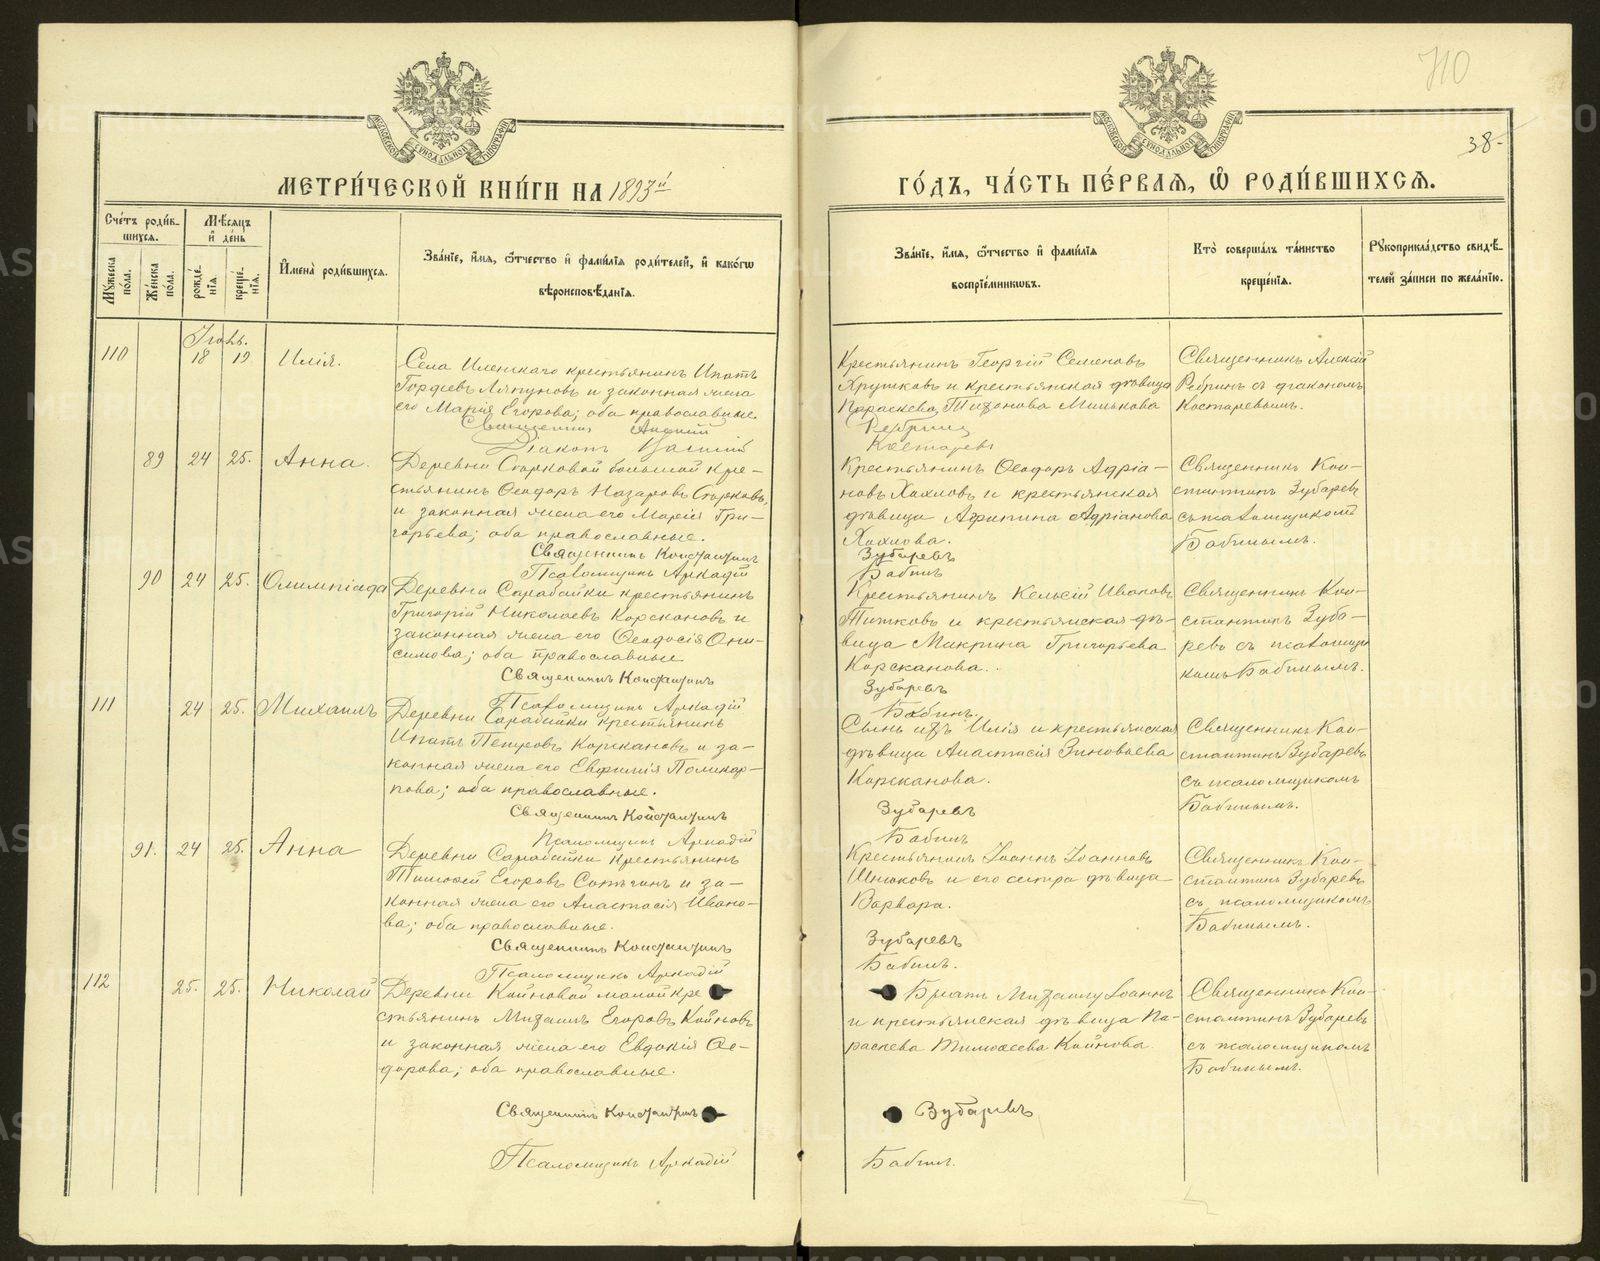 710
38
МЕТРИ́ЧЕСКОЙ КНИ́ГИ НА 1893й
ГО́ДЪ, ЧА́СТЬ ПЕ́РВАЯ, Ѽ РОДИ́ВШИХСЯ.
Сче́тъ роди́в-
шихся.
Му́жеска по́ла.
Же́нска по́ла.
Мѣ́сяцъ
и де́нь
рожде́-
нїя.
креще́-
нїя.
И́мена̀ роди́вшихся.
Зва́нїе, и́мя, ѻ́тчество и фами́лїя роди́телей, и како́гѡ
вѣроисповѣ́данїя.
Зва́нїе, и́мя, ѻ́тчество и фами́лїя
воспрїе́мникѡвъ.
Кто̀ соверша́лъ та́инство
креще́нїя.
Рꙋкоприкла́дство свидѣ́-
телей за́писи по жела́нїю.
Іюль.
110 18 19 Илія.
Села Иленскаго крестьянинъ Ипатъ
Гордѣевъ Ляпуновъ и законная жена
его Марія Егорова; оба православные.
Священникъ Алексій
Діаконъ
Крестьянинъ Георгій Семеновъ
Хрушковъ и крестьянская дѣвица
Параскева Тихонова Минькова
Ребринъ
Костаревъ
Священникъ Алексій
Ребринъ съ діакономъ
Костаревымъ.
89 24 25. Анна.
Деревни Сторковой большой кре-
стьянинъ Ѳеодоръ Назаровъ Сторковъ,
и законная жена его Марія Гри-
горьева; оба православные.
Священникъ Константинъ
Псаломщикъ Аркадій
Крестьянинъ Ѳеодоръ Адріа-
новъ Хохловъ и крестьянская
дѣвица Агрипина Адріанова
Хохлова.
Зубаревъ
Бабинъ
Священникъ Кон-
стантинъ Зубаревъ
съ псаломщикомъ
Бабинымъ.
90 24 25. Олимпіада
Деревни Сарабайки крестьянинъ
Григорій Николаевъ Корскановъ и
законная жена его Ѳеодосія Они-
симова; оба православные
Священникъ Константинъ
Псаломщикъ Аркадій
Крестьянинъ Кельсій Ивановъ
Титковъ и крестьянская дѣ-
вица Макрина Григорьева
Корсканова.
Зубаревъ
Бабинъ.
Священникъ Кон-
стантинъ Зуба-
ревъ съ псаломщи-
комъ Бабинымъ.
111 24 25. Михаилъ
Деревни Сарабайки крестьянинъ
Ипатъ Петровъ Корскановъ и за-
конная жена его Евфимія Поликар-
пова; оба православные.
Священникъ Константинъ
Псаломщикъ Аркадій
Сынъ ихъ Илія и крестьянская
дѣвица Анастасія Зиновьева
Корсканова.
Зубаревъ
Бабинъ
Священникъ Кон-
стантинъ Зубаревъ
съ псаломщикомъ
Бабинымъ.
91. 24 25. Анна
Деревни Сарабайки крестьянинъ
Тимофей Егоровъ Сотычинъ и за-
конная жена его Анастасія Ивано-
ва; оба православные.
Священникъ Константинъ
Псаломщикъ Аркадій
Крестьянинъ Іоаннъ Іоанновъ
Шнюковъ и его сестра дѣвица
Варвара.
Зубаревъ
Бабинъ.
Священникъ Кон-
стантинъ Зубаревъ
съ псаломщикомъ
Бабинымъ.
112 25. 25. Николай
Деревни Койновой малой кре
стьянинъ Михаилъ Егоровъ Койновъ
и законная жена его Евдокія Ѳе-
дорова; оба православные.
Священникъ Константинъ
Псаломщикъ Аркадій
Братъ Михаилу Іоаннъ
и крестьянская дѣвица Па-
раскева Тимоѳеева Койнова
Зубаревъ
Бабинъ.
Священникъ Кон-
стантинъ Зубаревъ
съ псаломщикомъ
Бабинымъ.
METRIKI.GASO-URAL.RU